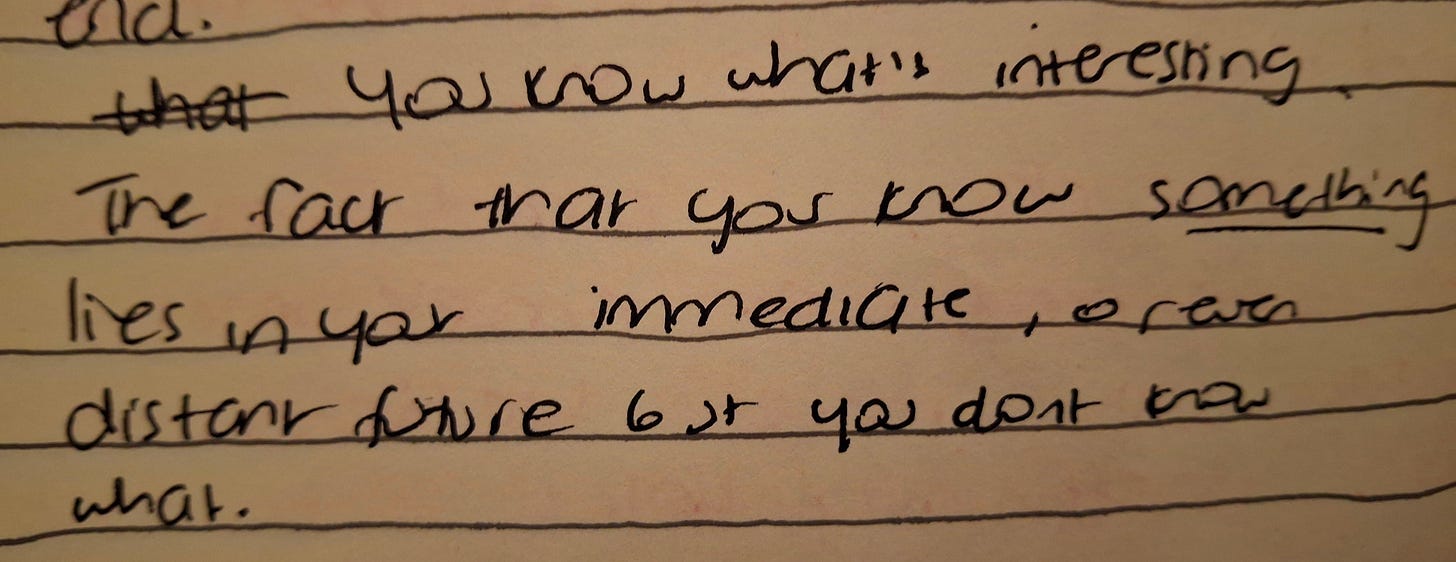 end.
that You know what's interesting.
The fact that you know something
lies in your immediate, or even
distant future but you dont know
what.